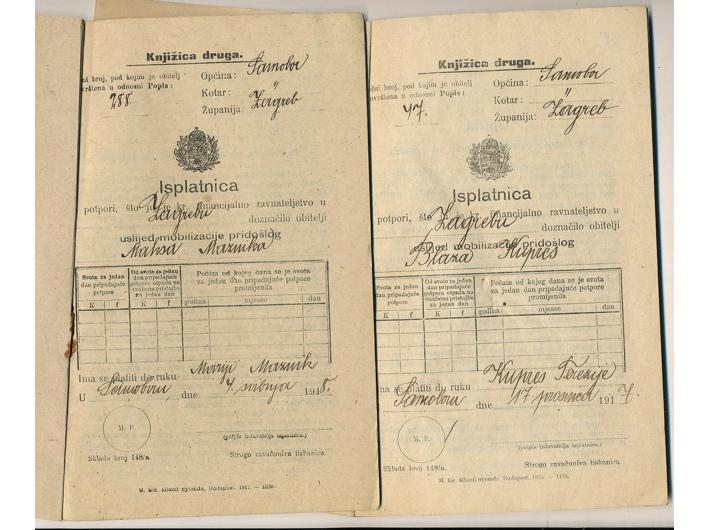 Knjižica druga.
ni broj, pod kojim je obitelj
uvrštena u odnosni Popis:
288.
Općina: Samobor
Kotar: "
Županija: Zagreb
Isplatnica
potpori, što ju je kr. financijalno ravnateljstvo u
Zagrebu
doznačilo obitelji
uslijed mobilizacije pridošlog
Maksa Maznika
Svota za jedan dan pripadajuće potpore
Od svote za jedan dan pripadajuće potpore otpada na stanbena pristojbu za jedan dan
Počam od kojeg dana se je svota za jedan dan pripadajuće potpore promijenila
K f K f godina mjesec dan
Ima se platiti do ruku Mariji Maznik
U Samoboru, dne 7. svibnja 1918.
M. P.
(potpis izdavatelja isplatnice.)
Sklada broj 148/a.
Strogo zaračuniva tiskanica.
M. kir. állami nyomda, Budapest. 1917. —
Knjižica druga.
dni broj, pod kojim je obitelj
uvrštena u odnosni Popis:
47.
Općina: Samobor
Kotar: "
Županija: Zagreb
Isplatnica
potpori, što ju je kr. financijalno ravnateljstvo u
Zagrebu
doznačilo obitelji
uslijed mobilizacije pridošlog
Blaža Kupres
Svota za jedan dan pripadajuće potpore
Od svote za jedan dan pripadajuće potpore otpada na stanbena pristojbu za jedan dan
Počam od kojeg dana se je svota za jedan dan pripadajuće potpore promijenila
K f K f godina mjesec dan
Ima se platiti do ruku Kupres Terezije
Samoboru dne 17 prosinca 1917.
M. P.
(potpis izdavatelja isplatnice.)
Sklada broj 148/a.
Strogo zaračuniva tiskanica.
M. kir. állami nyomda, Budapest.